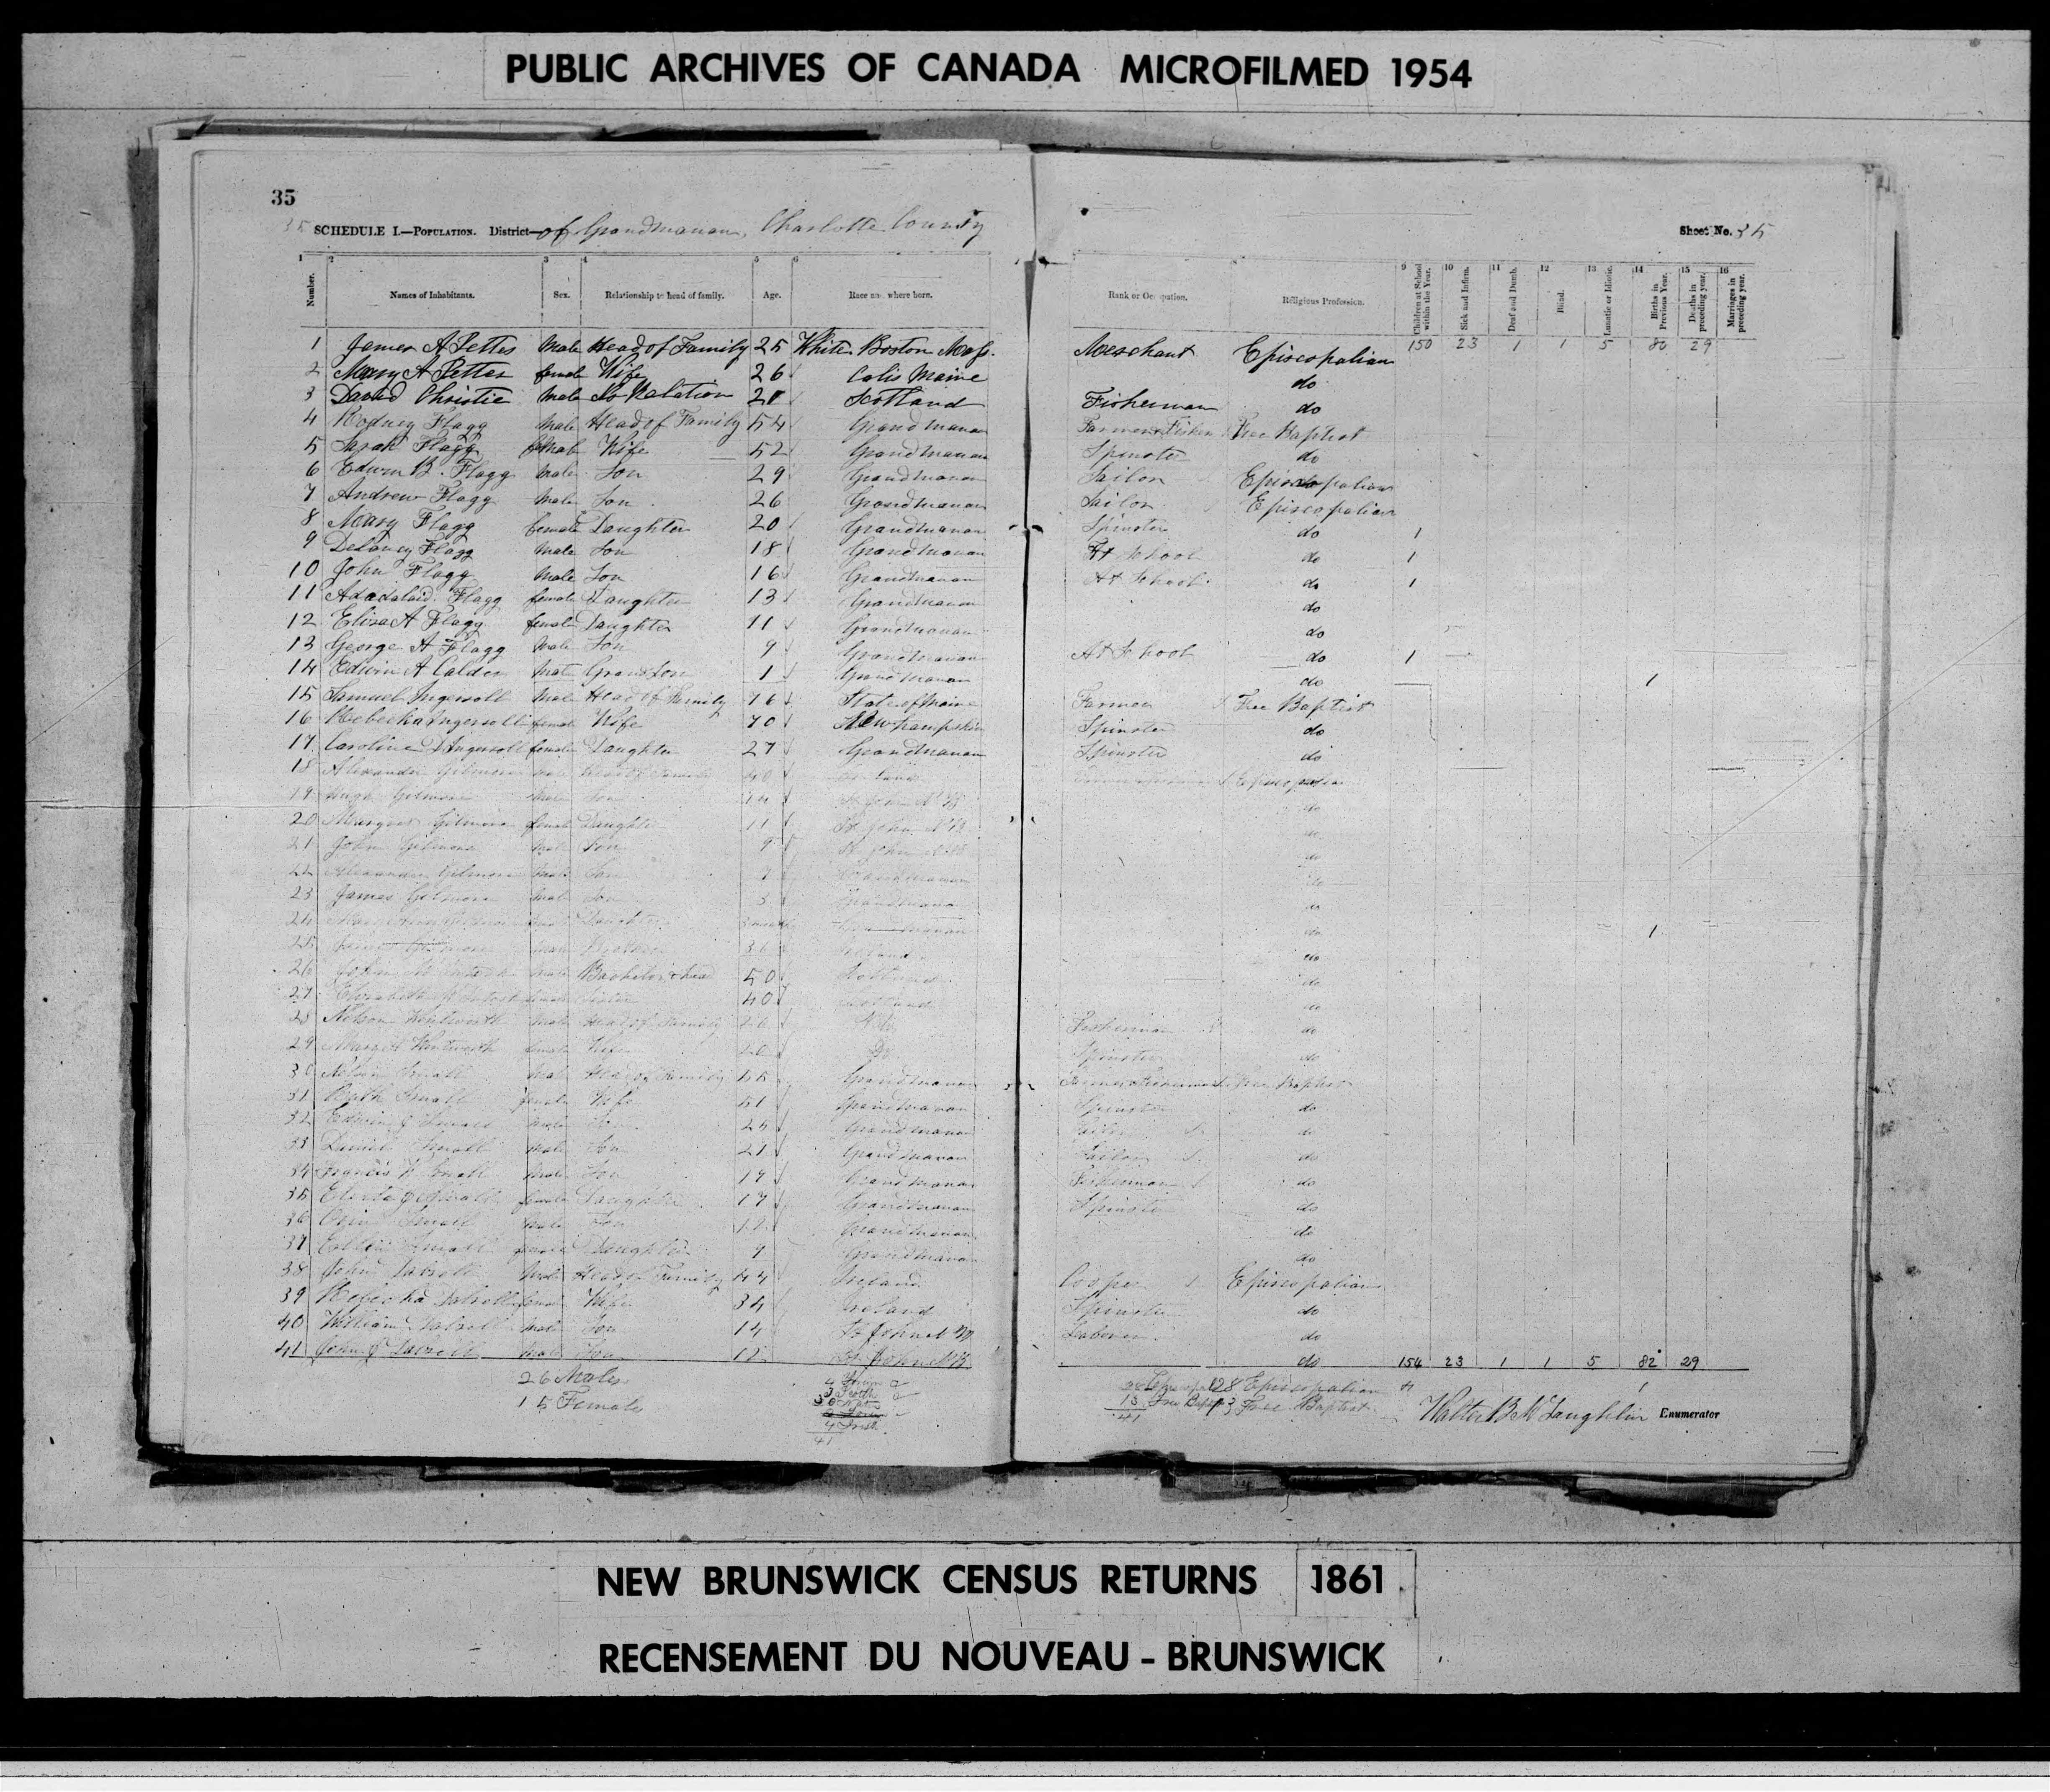 PUBLIC ARCHIVES OF CANADA MICROFILMED 1954
35
35 SCHEDULE I.—POPULATION. District—of Grandmanan, Charlotte County
Sheet No. 35
1 2 3 4 5 6 8 9 10 11 12 13 14 15 16
Number. Names of Inhabitants. Sex. Relationship to head of family. Age. Race and where born. Rank or Occupation. Religious Profession. Children at School within the Year. Sick and Infirm. Deaf and Dumb. Blind. Lunatic or Idiotic. Births in Previous Year. Deaths in preceding year. Marriages in preceding year.
150 23 1 1 5 80 29
1 James A Pettes Male Head of Family 25 White Boston Mass. Merchant Episcopalian
2 Mary A Pettes female Wife 26 Calis Maine do
3 David Christie Male No Relation 21 Scotland Fisherman do
4 Rodney Flagg Male Head of Family 54 Grandmanan Farmer & Fisher Free Baptist
5 Sarah Flagg Wife 52 Grandmanan Spinster do
6 Edwin B. Flagg Male Son 29 Grandmanan Sailor Episcopalian
7 Andrew Flagg Male Son 26 Grandmanan Sailor Episcopalian
8 Mary Flagg female Daughter 20 Grandmanan Spinster do 1
9 Delancy Flagg Male Son 18 Grandmanan At School do 1
10 John Flagg Male Son 16 Grandmanan At School do 1
11 Adadalaid Flagg female Daughter 13 Grandmanan do
12 Eliza A Flagg female Daughter 11 Grandmanan do
13 George A Flagg Male Son 9 Grandmanan At School do 1
14 Edwin A Calder Male Grand Son 1 Grandmanan do 1
15 Samuel Ingersoll Male Head of Family 76 State of Maine Farmer Free Baptist
16 Rebecka Ingersoll female Wife 70 New Hampshire Spinster do
17 Caroline D Ingersoll female Daughter 27 Grandmanan Spinster do
18 Alexander Gilmore Male Head of Family 40 Episcopalian
19 Hugh Gilmore Male Son 14 St John N B do
20 Margaret Gilmore female Daughter 11 St John N B do
21 John Gilmore Male Son 9 St John N B do
22 Alexander Gilmore Male Son Grandmanan do
23 James Gilmore Male Son 3 Grandmanan do
24 Daughter Grandmanan do 1
25 James Gilmore Male Brother 36 Ireland do
26 John Male Bachelor & head 50 Scotland do
27 Elizabeth female Sister 40 Scotland do
28 Nelson Wentworth Male Head of Family 26 N B Fisherman do
29 Wentworth female Wife 20 Do Spinster do
30 Nelson Small Male Head of Family 55 Grandmanan Farmer & Fisherman Free Baptist
31 Ruth Small female Wife 51 Grandmanan Spinster do
32 Edwin J Small Male Son Grandmanan Sailor do
33 Daniel Small Male Son 21 Grandmanan Sailor do
34 Francis Small Male Son 19 Grandmanan Fisherman do
35 Small female Daughter 17 Grandmanan Spinster do
36 Small Male Son 12 Grandmanan do
37 Small female Daughter 9 Grandmanan do
38 John Male Head of Family 44 Ireland Cooper Episcopalian
39 Rebecka female Wife 34 Ireland Spinster do
40 William Male Son 14 St John N B Laborer do
41 John Male Son 12 St John N B do
154 23 1 1 5 82 29
26 Males
15 Females
3 Scoth
4 Irish
41
28 Episcopalian
13 Free Baptist
41
Walter B McLaughlin Enumerator
NEW BRUNSWICK CENSUS RETURNS 1861
RECENSEMENT DU NOUVEAU - BRUNSWICK